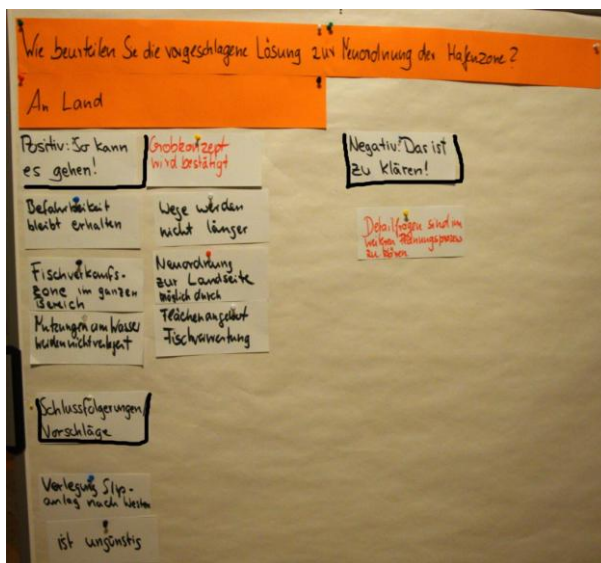 Wie beurteilen Se die vorgeschlagene Lösung zur Neuordnung der Hafenzone?
An Land
Positiv: So kann
es gehen!
Grobkonzept
wird bestätigt
Negativ: Das ist
zu klären!
Befahrbarkeit
bleibt erhalten
Wege werden
nicht länger
Detailfragen sind im
weiteren Planungsprozess
zu klären
Fischverkaufs-
zone im ganzen
Bereich
Neuordnung
zur Landseite
möglich durch
Nutzungen am Wasser
werden nicht verlagert
Flächenangebot
Fischverwertung
Schlussfolgerungen/
Vorschläge
Verlegung Slip-
anlage nach Westen
ist ungünstig